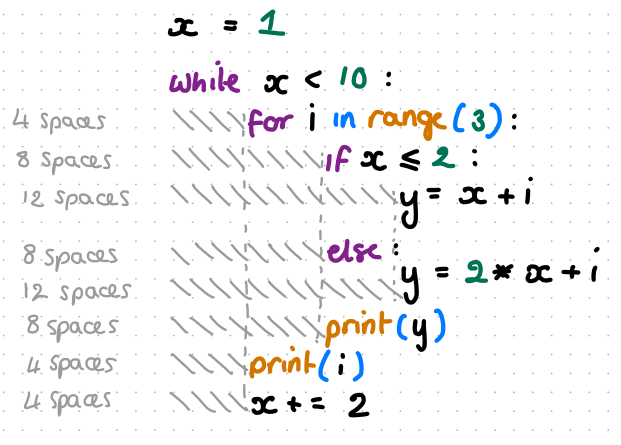 x = 1
while x < 10 :
4 spaces for i in range(3):
8 spaces if x ≤ 2 :
12 spaces y = x + i
8 spaces else :
12 spaces y = 2 * x + i
8 spaces print(y)
4 spaces print(i)
4 spaces x += 2